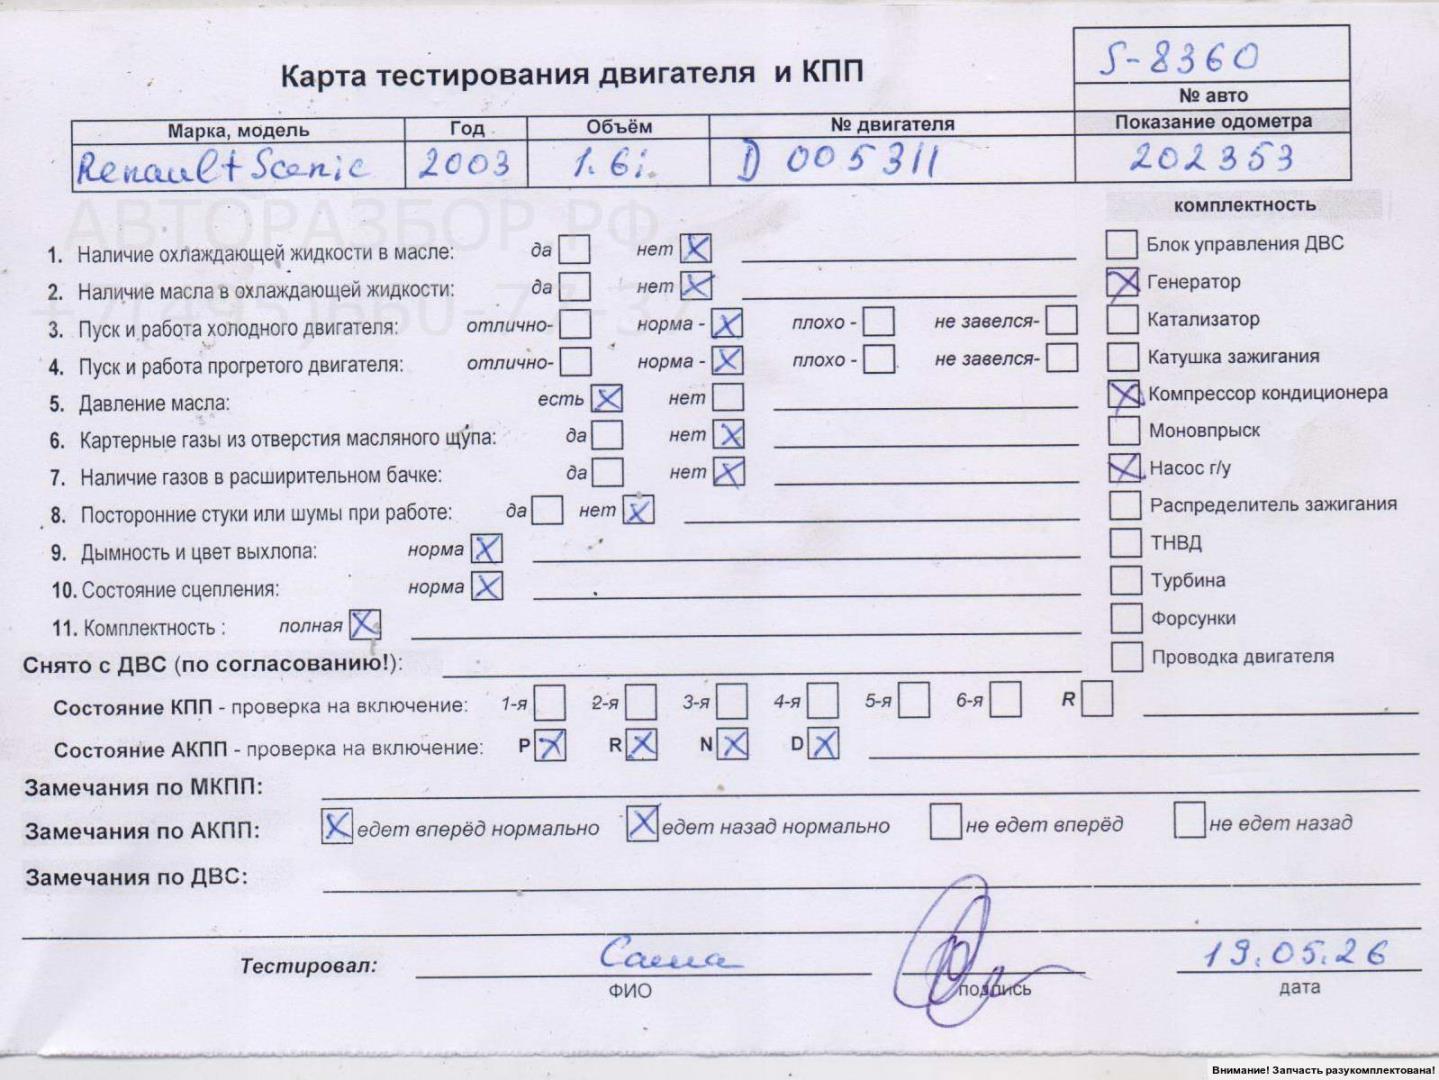 S-8360
Карта тестирования двигателя и КПП
№ авто
Марка, модель Год Объём № двигателя Показание одометра
Renault Scenic 2003 1.6i D 005311 202353
АВТОРАЗБОР.РФ
комплектность
1. Наличие охлаждающей жидкости в масле: да нет Блок управления ДВС
2. Наличие масла в охлаждающей жидкости: да нет Генератор
3. Пуск и работа холодного двигателя: отлично- норма - плохо - не завелся- Катализатор
4. Пуск и работа прогретого двигателя: отлично- норма - плохо - не завелся- Катушка зажигания
5. Давление масла: есть нет Компрессор кондиционера
6. Картерные газы из отверстия масляного щупа: да нет Моновпрыск
7. Наличие газов в расширительном бачке: да нет Насос г/у
8. Посторонние стуки или шумы при работе: да нет Распределитель зажигания
9. Дымность и цвет выхлопа: норма ТНВД
10. Состояние сцепления: норма Турбина
11. Комплектность : полная Форсунки
Снято с ДВС (по согласованию!): Проводка двигателя
Состояние КПП - проверка на включение: 1-я 2-я 3-я 4-я 5-я 6-я R
Состояние АКПП - проверка на включение: P R N D
Замечания по МКПП:
Замечания по АКПП: едет вперёд нормально едет назад нормально не едет вперёд не едет назад
Замечания по ДВС:
Тестировал: Саша 19.05.26
ФИО подпись дата
Внимание! Запчасть разукомплектована!